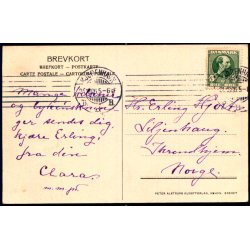 BREVKORT
BREFKORT - POSTKARTE
CARTE POSTALE - CARTOLINA POSTALE
DANMARK
Mange
og lykønskninger
sendes dig,
kjære Erling,
fra din
Clara
m.m.fl.
Hr. Erling Hjort
Liljenhaug
Throndhjem
Norge.
PETER ALSTRUPS KUNSTFORLAG,